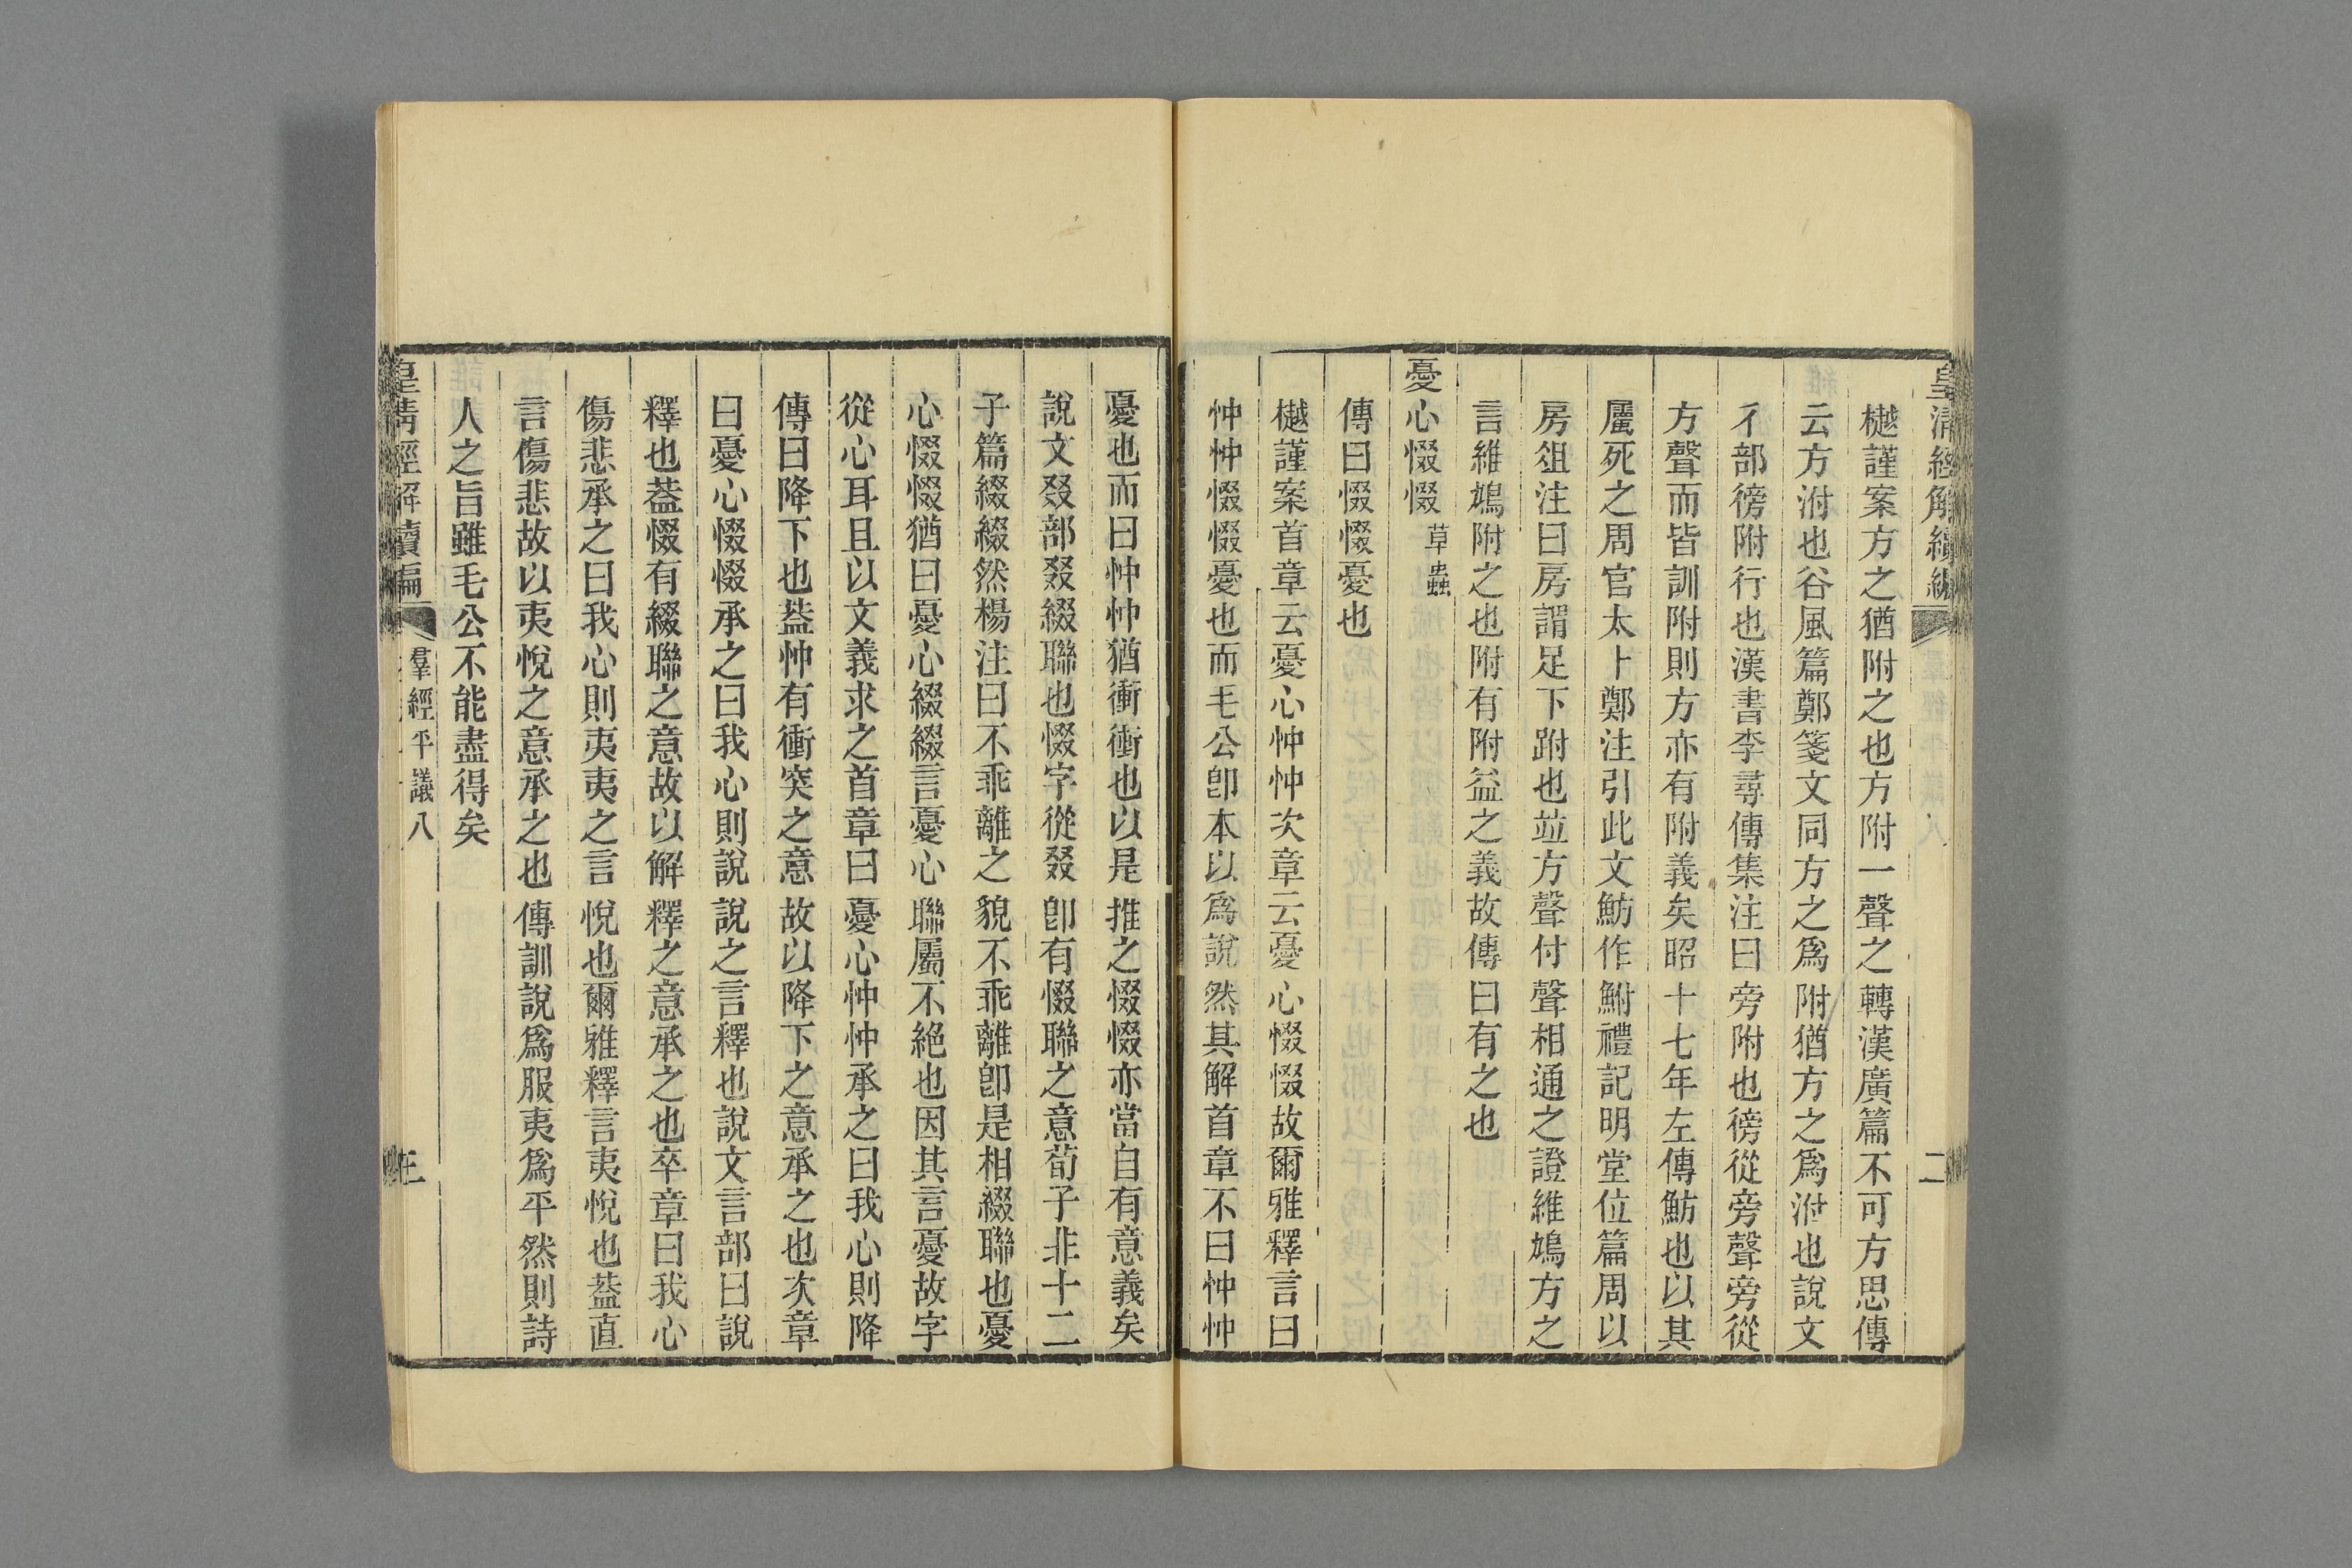 皇清經解續編
二
樾謹案方之猶附之也方附一聲之轉漢廣篇不可方思傳
云方泭也谷風篇鄭箋文同方之爲附猶方之爲泭也說文
彳部徬附行也漢書李尋傳集注曰旁附也徬從旁聲旁從
方聲而皆訓附則方亦有附義矣昭十七年左傳魴也以其
屬死之周官太卜鄭注引此文魴作鮒禮記明堂位篇周以
房俎注曰房謂足下跗也竝方聲付聲相通之證維鳩方之
言維鳩附之也附有附益之義故傳曰有之也
憂心惙惙 草蟲
傳曰惙惙憂也
樾謹案首章云憂心忡忡次章云憂心惙惙故爾雅釋言曰
忡忡惙惙憂也而毛公卽本以爲說然其解首章不曰忡忡
憂也而曰忡忡猶衝衝也以是推之惙惙亦當自有意義矣
說文叕部叕綴聯也惙字從叕卽有惙聯之意荀子非十二
子篇綴綴然楊注曰不乖離之貌不乖離卽是相綴聯也憂
心惙惙猶曰憂心綴綴言憂心聯屬不絕也因其言憂故字
從心耳且以文義求之首章曰憂心忡忡承之曰我心則降
傳曰降下也葢忡有衝突之意故以降下之意承之也次章
曰憂心惙惙承之曰我心則說說之言釋也說文言部曰說
釋也葢惙有綴聯之意故以解釋之意承之也卒章曰我心
傷悲承之曰我心則夷夷之言悅也爾雅釋言夷悅也葢直
言傷悲故以夷悅之意承之也傳訓說爲服夷爲平然則詩
人之旨雖毛公不能盡得矣
皇清經解續編
羣經平議八